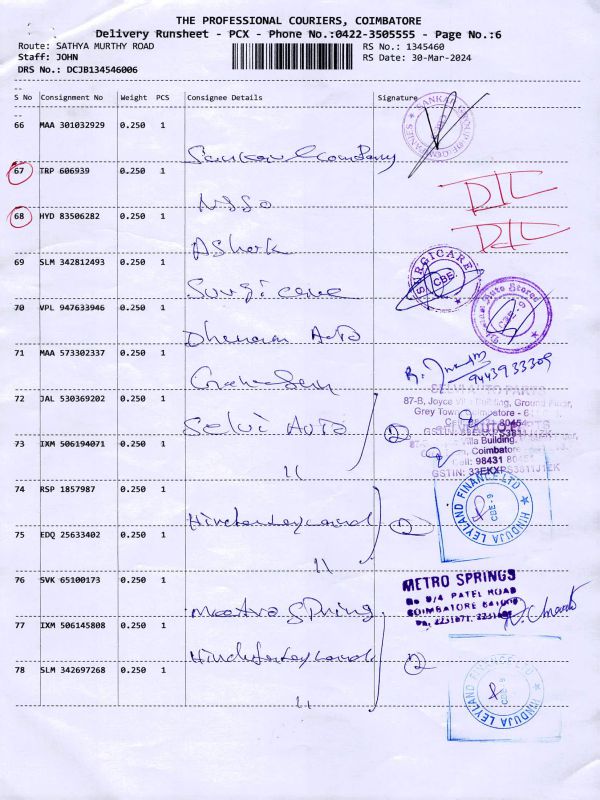 THE PROFESSIONAL COURIERS, COIMBATORE
Delivery Runsheet - PCX - Phone No.:0422-3505555 - Page No.:6
Route: SATHYA MURTHY ROAD RS No.: 1345460
Staff: JOHN RS Date: 30-Mar-2024
DRS No.: DCJB134546006
S No Consignment No Weight PCS Consignee Details Signature
66 MAA 301032929 0.250 1
Sankar & Company
67 TRP 606939 0.250 1
68 HYD 83506282 0.250 1
Ashok
69 SLM 342812493 0.250 1
Surgicare
SURGICARE
CBE
70 VPL 947633946 0.250 1
Dhanam Auto
Auto Stores
CBE-9
71 MAA 573302337 0.250 1
9443933309
72 JAL 530369202 0.250 1
Selvi Auto
SELVI AUTO PARTS
87-B, Joyce Villa Building, Ground Floor,
Grey Town, Coimbatore -
73 IXM 506194071 0.250 1
11
2
Villa Building,
Coimbatore
Cell: 98431
GSTIN: 33EKXPS3811J1ZK
74 RSP 1857987 0.250 1
2
HINDUJA LEYLAND FINANCE LTD
CBE-9
75 EDQ 25633402 0.250 1
11
76 SVK 65100173 0.250 1
Metro Spring
METRO SPRINGS
No 9/4 PATEL ROAD
COIMBATORE
77 IXM 506145808 0.250 1
2
78 SLM 342697268 0.250 1
11
HINDUJA LEYLAND FINANCE LTD
CBE-9